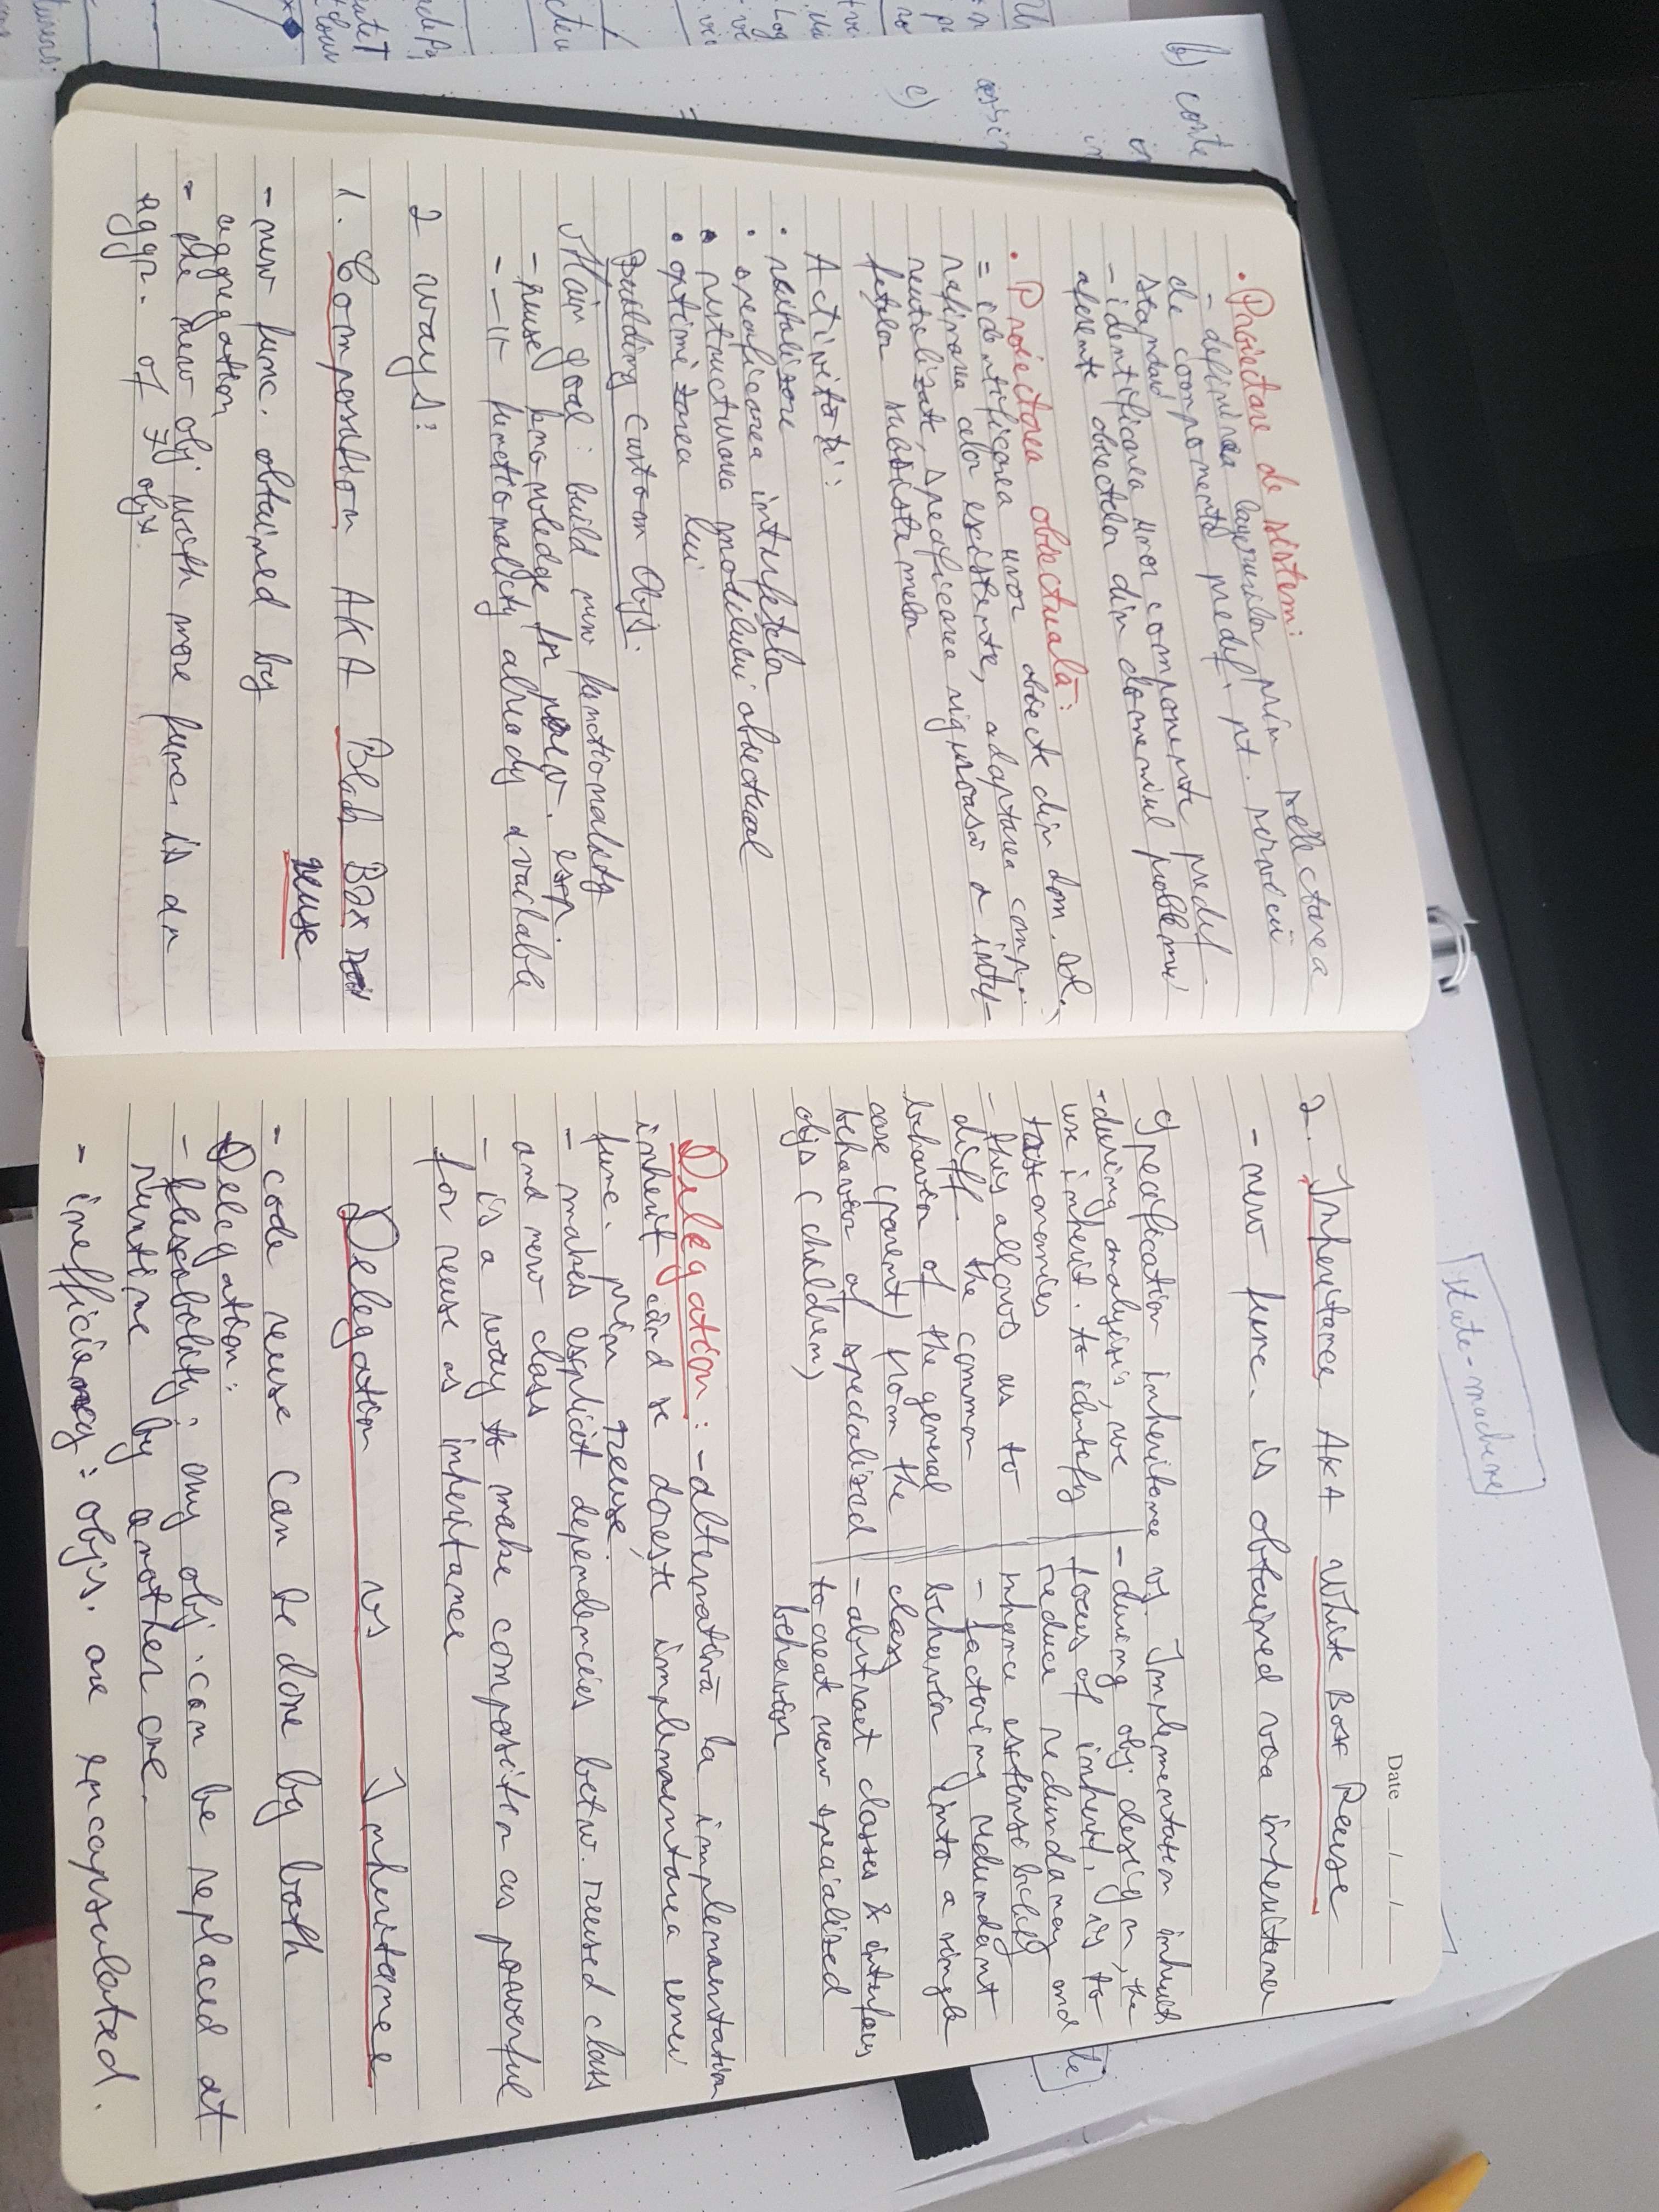 • Proiectare de sistem:
- definirea layerurilor prin selectarea
de componente predef. pt. servicii
standard
- identificarea unor componente predef.
aferente obiectelor din domeniul problemei
• Proiectarea obiectuală:
= identificarea unor obiecte din dom. sol.,
rafinarea celor existente, adaptarea comp.
reutilizate, specificarea riguroasă a inter-
fețelor subsistemelor
Activități:
• reutilizare
• specificarea interfețelor
• restructurarea modelului obiectual
• optimizarea lui
Building custom Objs.
Main goal: build new functionality
- reuse knowledge fr prev. exp.
- -||- functionality already available
2 ways:
1. Composition AKA Black Box
reuse
- new func. obtained by
aggregation
- the new obj with more func. is an
aggr. of 7 objs.
Date __/__/__
2. Inheritance AKA White Box Reuse
- new func. is obtained via inheritance
Specification inheritance vs. Implementation inherit
- during analysis, we
use inherit. to identify
taxonomies
- this allows us to
diff. the common
behavior of the general
case (parent) from the
behavior of specialised
objs (children)
- during obj design, the
focus of inherit. is to
reduce redundancy and
enhance extensibility
- factoring redundant
behavior into a single
class
- abstract classes & interfaces
to creat new specialised
behavior
Delegation: - alternativă la implementation
inherit când se dorește implementarea unei
func. prin reuse
- makes explicit dependencies betw. reused class
and new class
- is a way to make composition as powerful
for reuse as inheritance
Delegation vs Inheritance
- code reuse can be done by both
Delegation:
- flexibility: any obj. can be replaced at
runtime by another one.
- inefficiency: objs. are encapsulated.
state-machine
b) conte
c)